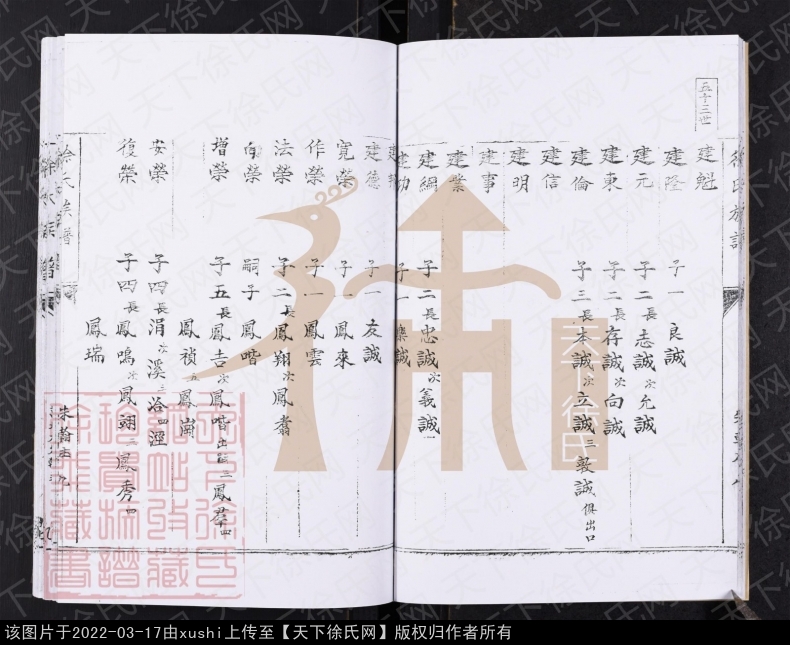 五十三世
徐氏族譜
建魁
建隆 子一 良誠
建元 子二 長志誠 次允誠
建東 子二 長存誠 次向誠
建倫 子三 長本誠 次立誠 三毅誠 俱出口
建信
建明
建事
建業
建綱 子二 長忠誠 次義誠
建功 子一 樂誠
建德 子一 友誠
寬榮 子一 鳳來
作榮 子一 鳳雲
法榮 子二 長鳳翔 次鳳翥
向榮 嗣子 鳳喈
增榮 子五 長鳳吉 次鳳喈 出嗣 三鳳羣 四
鳳禎 五鳳崗
安榮 子四 長涓 次溪 三洛 四涇
復榮 子四 長鳳鳴 次鳳翊 三鳳秀 四
鳳瑞
徐氏族譜
天下徐氏网
美人徐氏
该图片于2022-03-17由xushi上传至【天下徐氏网】版权归作者所有